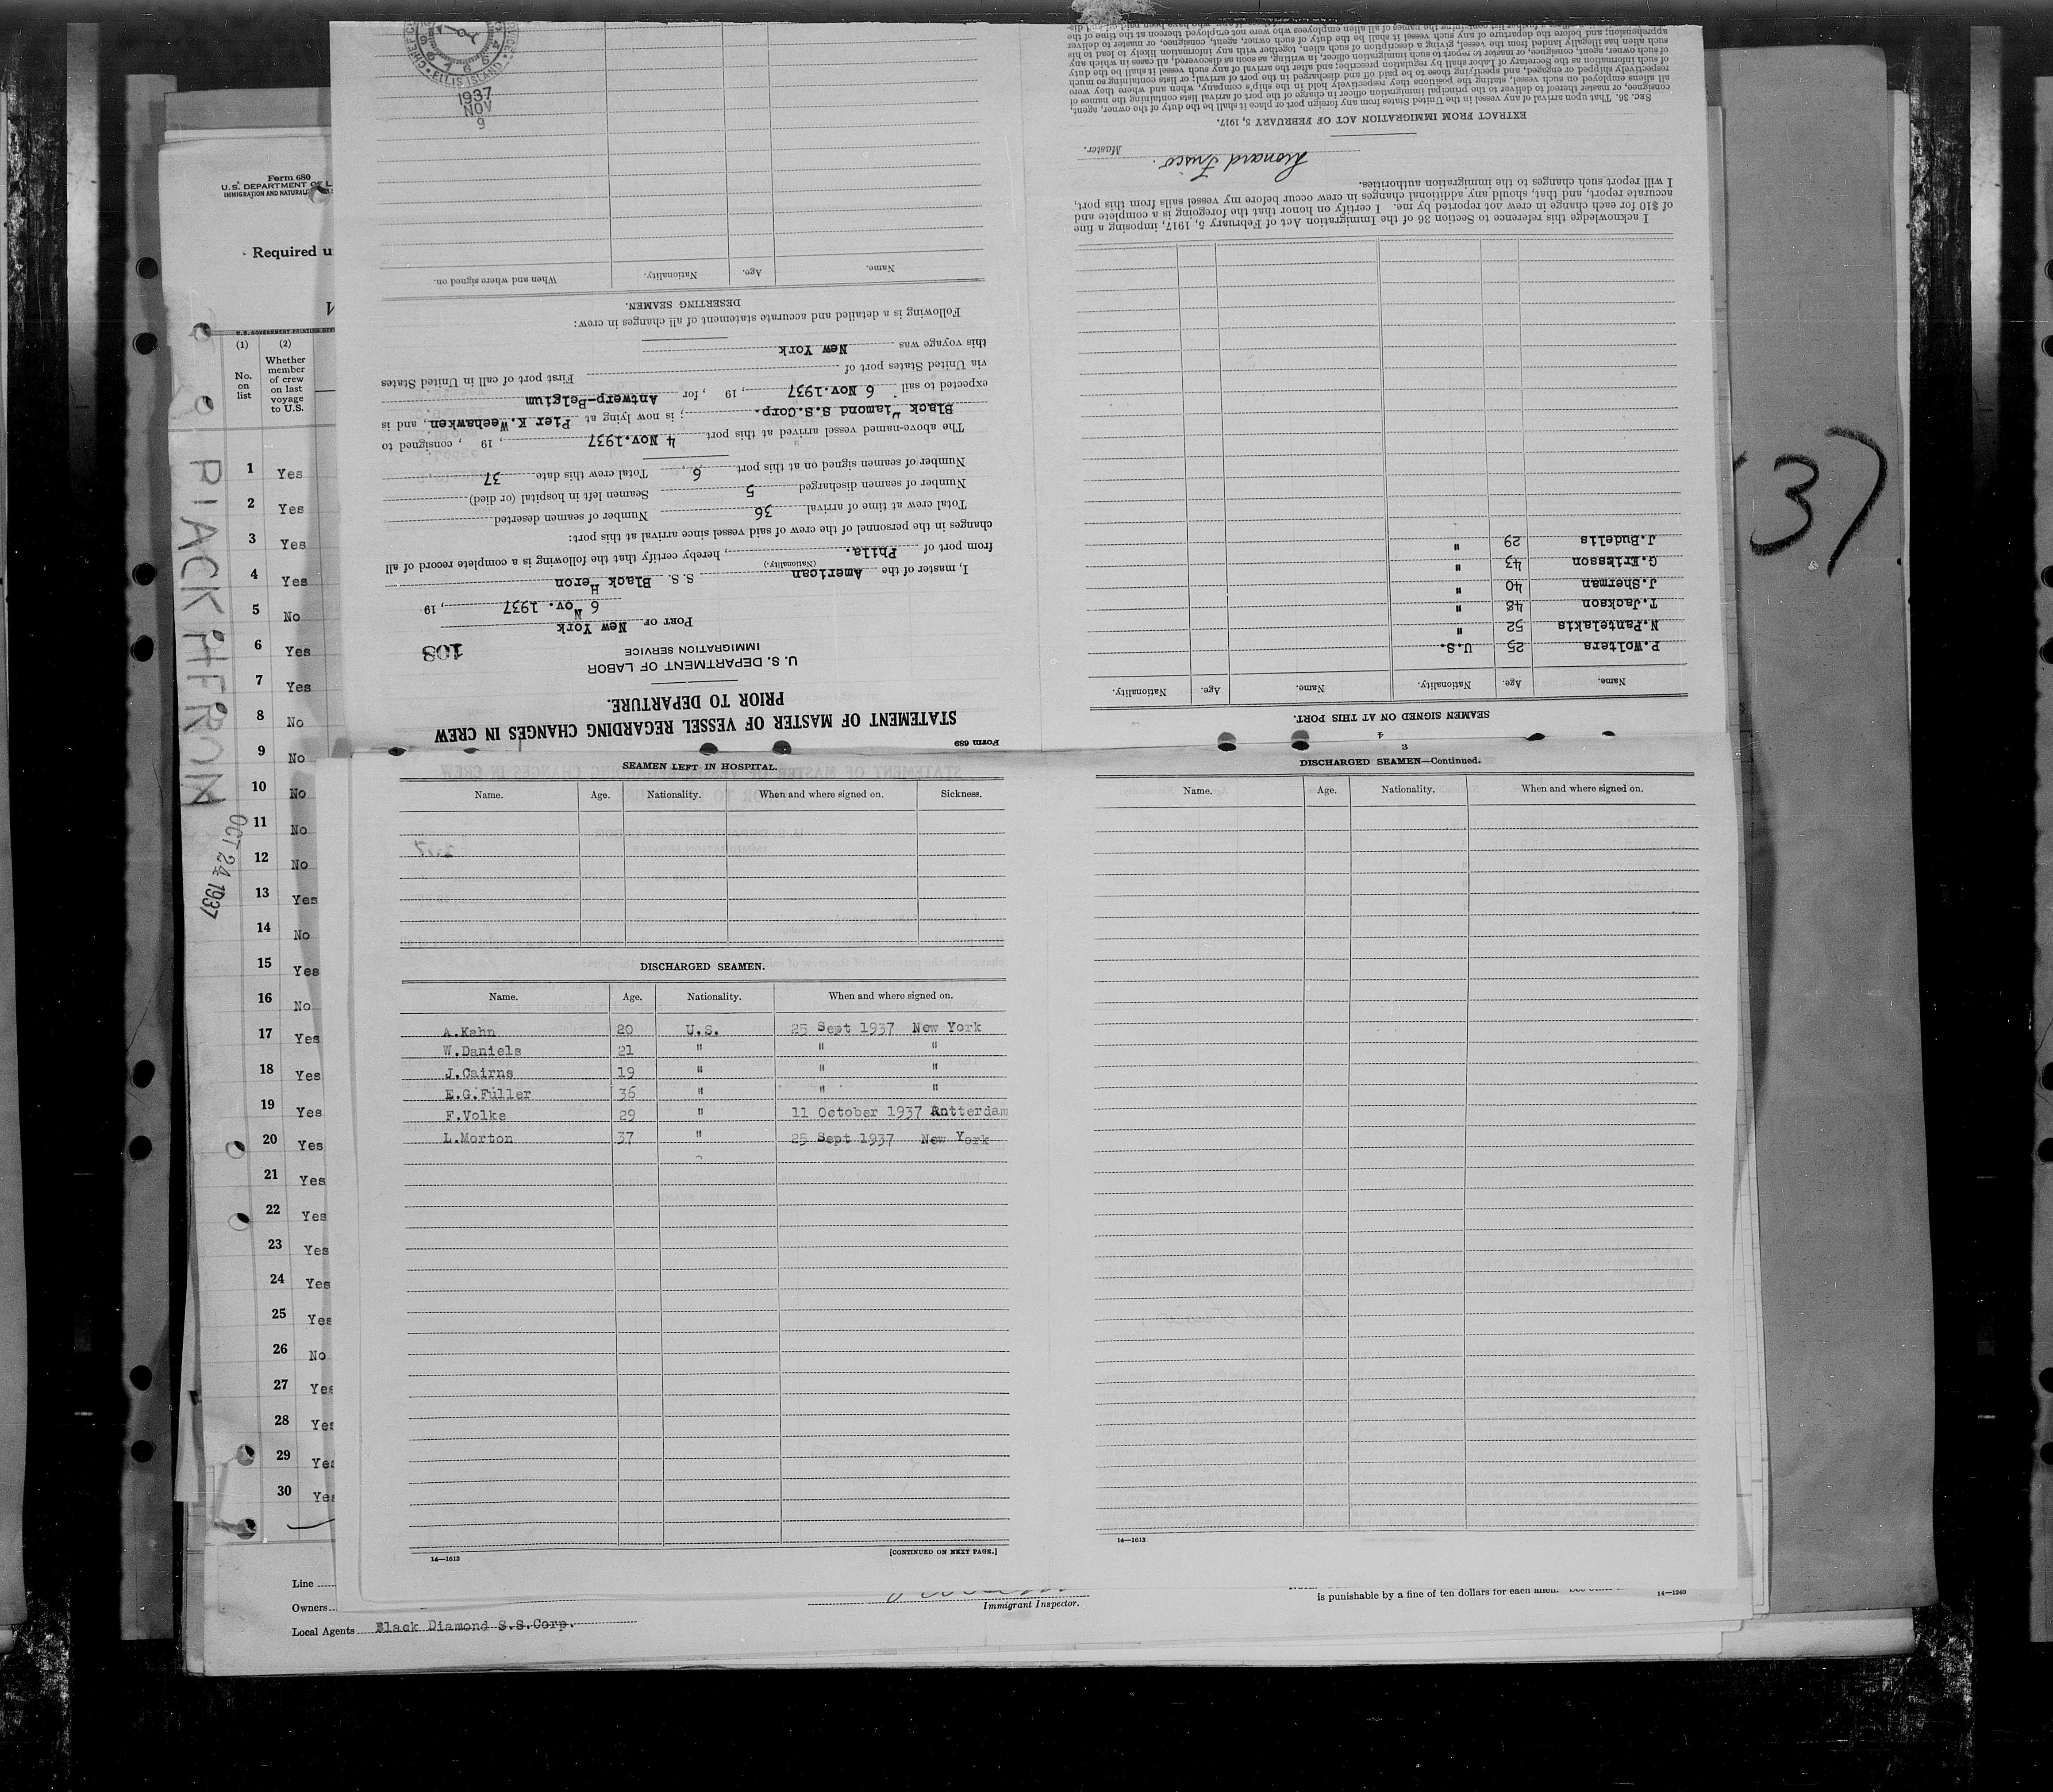 Form 680
U. S. DEPARTMENT OF L
IMMIGRATION AND NATURAL
Required u
U.S. GOVERNMENT PRINTING OFF
(1) (2)
No. on list
Whether member of crew on last voyage to U.S.
1 Yes
2 Yes
3 Yes
4 Yes
5 No
6 Yes
7 Yes
8 No
9 No
10 No
11 No
12 No
13 Yes
14 No
15 Yes
16 No
17 Yes
18 Yes
19 Yes
20 Yes
21 Yes
22 Yes
23 Yes
24 Yes
25 Yes
26 No
27 Yes
28 Yes
29 Yes
30 Yes
BLACK HERON
OCT 24 1937
Line
Owners
Local Agents Black Diamond S.S.Corp.
Immigrant Inspector.
is punishable by a fine of ten dollars for each alien.
14—1240
37
Form 689
STATEMENT OF MASTER OF VESSEL REGARDING CHANGES IN CREW
PRIOR TO DEPARTURE.
U. S. DEPARTMENT OF LABOR
IMMIGRATION SERVICE
108
PORT OF New York
6 Nov. 1937, 19
I, master of the American S. S. Black Heron
(Nationality.)
from port of Phila., hereby certify that the following is a complete record of all
changes in the personnel of the crew of said vessel since arrival at this port:
Total crew at time of arrival 36 Number of seamen deserted
Number of seamen discharged 5 Seamen left in hospital (or died)
Number of seamen signed on at this port 6 Total crew this date 37
The above-named vessel arrived at this port 4 Nov.1937, 19 , consigned to
Black Diamond S.S.Corp. ; is now lying at Pier K.Weehawken, and is
expected to sail 6 Nov.1937, 19 , for Antwerp-Belgium
via United States port of First port of call in United States
this voyage was New York
Following is a detailed and accurate statement of all changes in crew:
DESERTING SEAMEN.
Name. Age. Nationality. When and where signed on.
1937
NOV
9
ELLIS ISLAND
4
SEAMEN SIGNED ON AT THIS PORT.
Name. Age. Nationality. Name. Age. Nationality.
P.Wolters 25 U.S.
N.Pantelakis 52 "
T.Jackson 48 "
J.Sherman 40 "
G.Eriksson 43 "
J.Budelis 29 "
I acknowledge this reference to Section 36 of the Immigration Act of February 5, 1917, imposing a fine
of $10 for each change in crew not reported by me. I certify on honor that the foregoing is a complete and
accurate report, and that, should any additional changes in crew occur before my vessel sails from this port,
I will report such changes to the immigration authorities.
Leonard Frisco.
Master.
EXTRACT FROM IMMIGRATION ACT OF FEBRUARY 5, 1917.
SEC. 36. That upon arrival of any vessel in the United States from any foreign port or place it shall be the duty of the owner, agent,
consignee, or master thereof to deliver to the principal immigration officer in charge of the port of arrival lists containing the names of
all aliens employed on such vessel, stating the positions they respectively hold in the ship's company, when and where they were
respectively shipped or engaged, and specifying those to be paid off and discharged in the port of arrival; or lists containing so much
of such information as the Secretary of Labor shall by regulation prescribe; and after the arrival of any such vessel it shall be the duty
of such owner, agent, consignee, or master to report to such immigration officer, in writing, as soon as discovered, all cases in which any
such alien has illegally landed from the vessel, giving a description of such alien, together with any information likely to lead to his
apprehension; and before the departure of any such vessel it shall be the duty of such owner, agent, consignee, or master to deliver
SEAMEN LEFT IN HOSPITAL.
Name. Age. Nationality. When and where signed on. Sickness.
DISCHARGED SEAMEN.
Name. Age. Nationality. When and where signed on.
A.Kahn 20 U.S. 25 Sept 1937 New York
W.Daniels 21 " " "
J.Cairns 19 " " "
E.G.Fuller 36 " " "
F.Volke 29 " 11 October 1937 Rotterdam
L.Morton 37 " 25 Sept 1937 New York
14—1613
[CONTINUED ON NEXT PAGE.]
3
DISCHARGED SEAMEN—Continued.
Name. Age. Nationality. When and where signed on.
14—1613